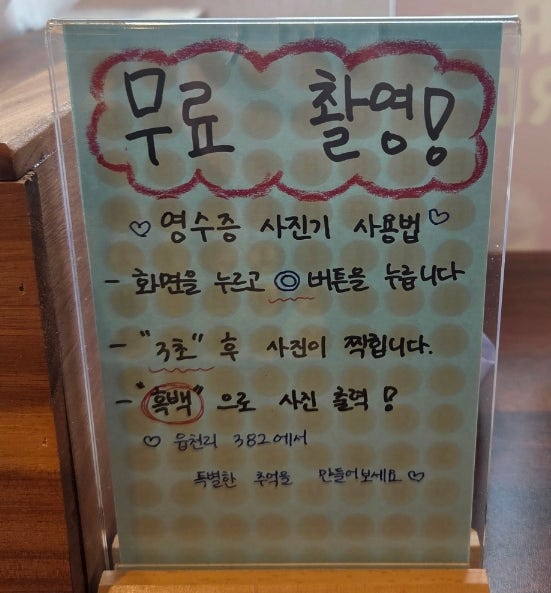 무료 촬영!
♡ 영수증 사진기 사용법 ♡
- 화면을 누르고 ◎ 버튼을 누릅니다
- "3초" 후 사진이 찍힙니다.
- "흑백" 으로 사진 출력!
♡ 읍천리 382에서
특별한 추억을 만들어보세요 ♡